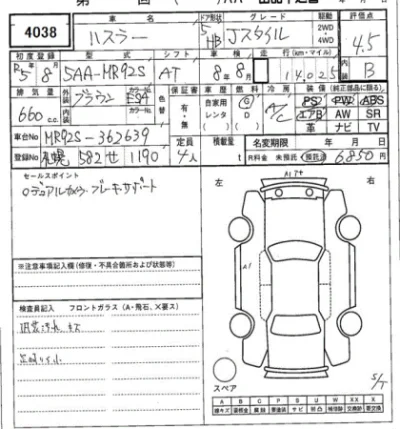 4038
車名 ハスラー
ドア形状 5 HB
グレード Jスタイル
駆動 2WD 4WD
評価点 4.5
初度登録 R5年8月
型式 5AA-MR92S
シフト AT
車検 8年8月
走行 (km・マイル) 14,025
内装 B
排気量 660 c.c.
外装 ブラウン
内装
カラーNo.
色替
保証書 有・無
車歴 自家用 レンタ
燃料 G D
冷房 A/C
装備 (純正部品に限る)
PS PW ABS
エアB AW SR
革 ナビ TV
車台No MR92S-362639
登録No 札幌 582 せ 1190
定員 4人
積載量 t
名変期限 年 月 日
R料金 未預託 預託済 6850円
セールスポイント
○デュアルカメラブレーキサポート
左
右
A1
※注意事項記入欄(修復・不具合箇所および状態等)
検査員記入 フロントガラス (A・飛石、×要ス)
スペア
S/T
A B C P S U W X XX